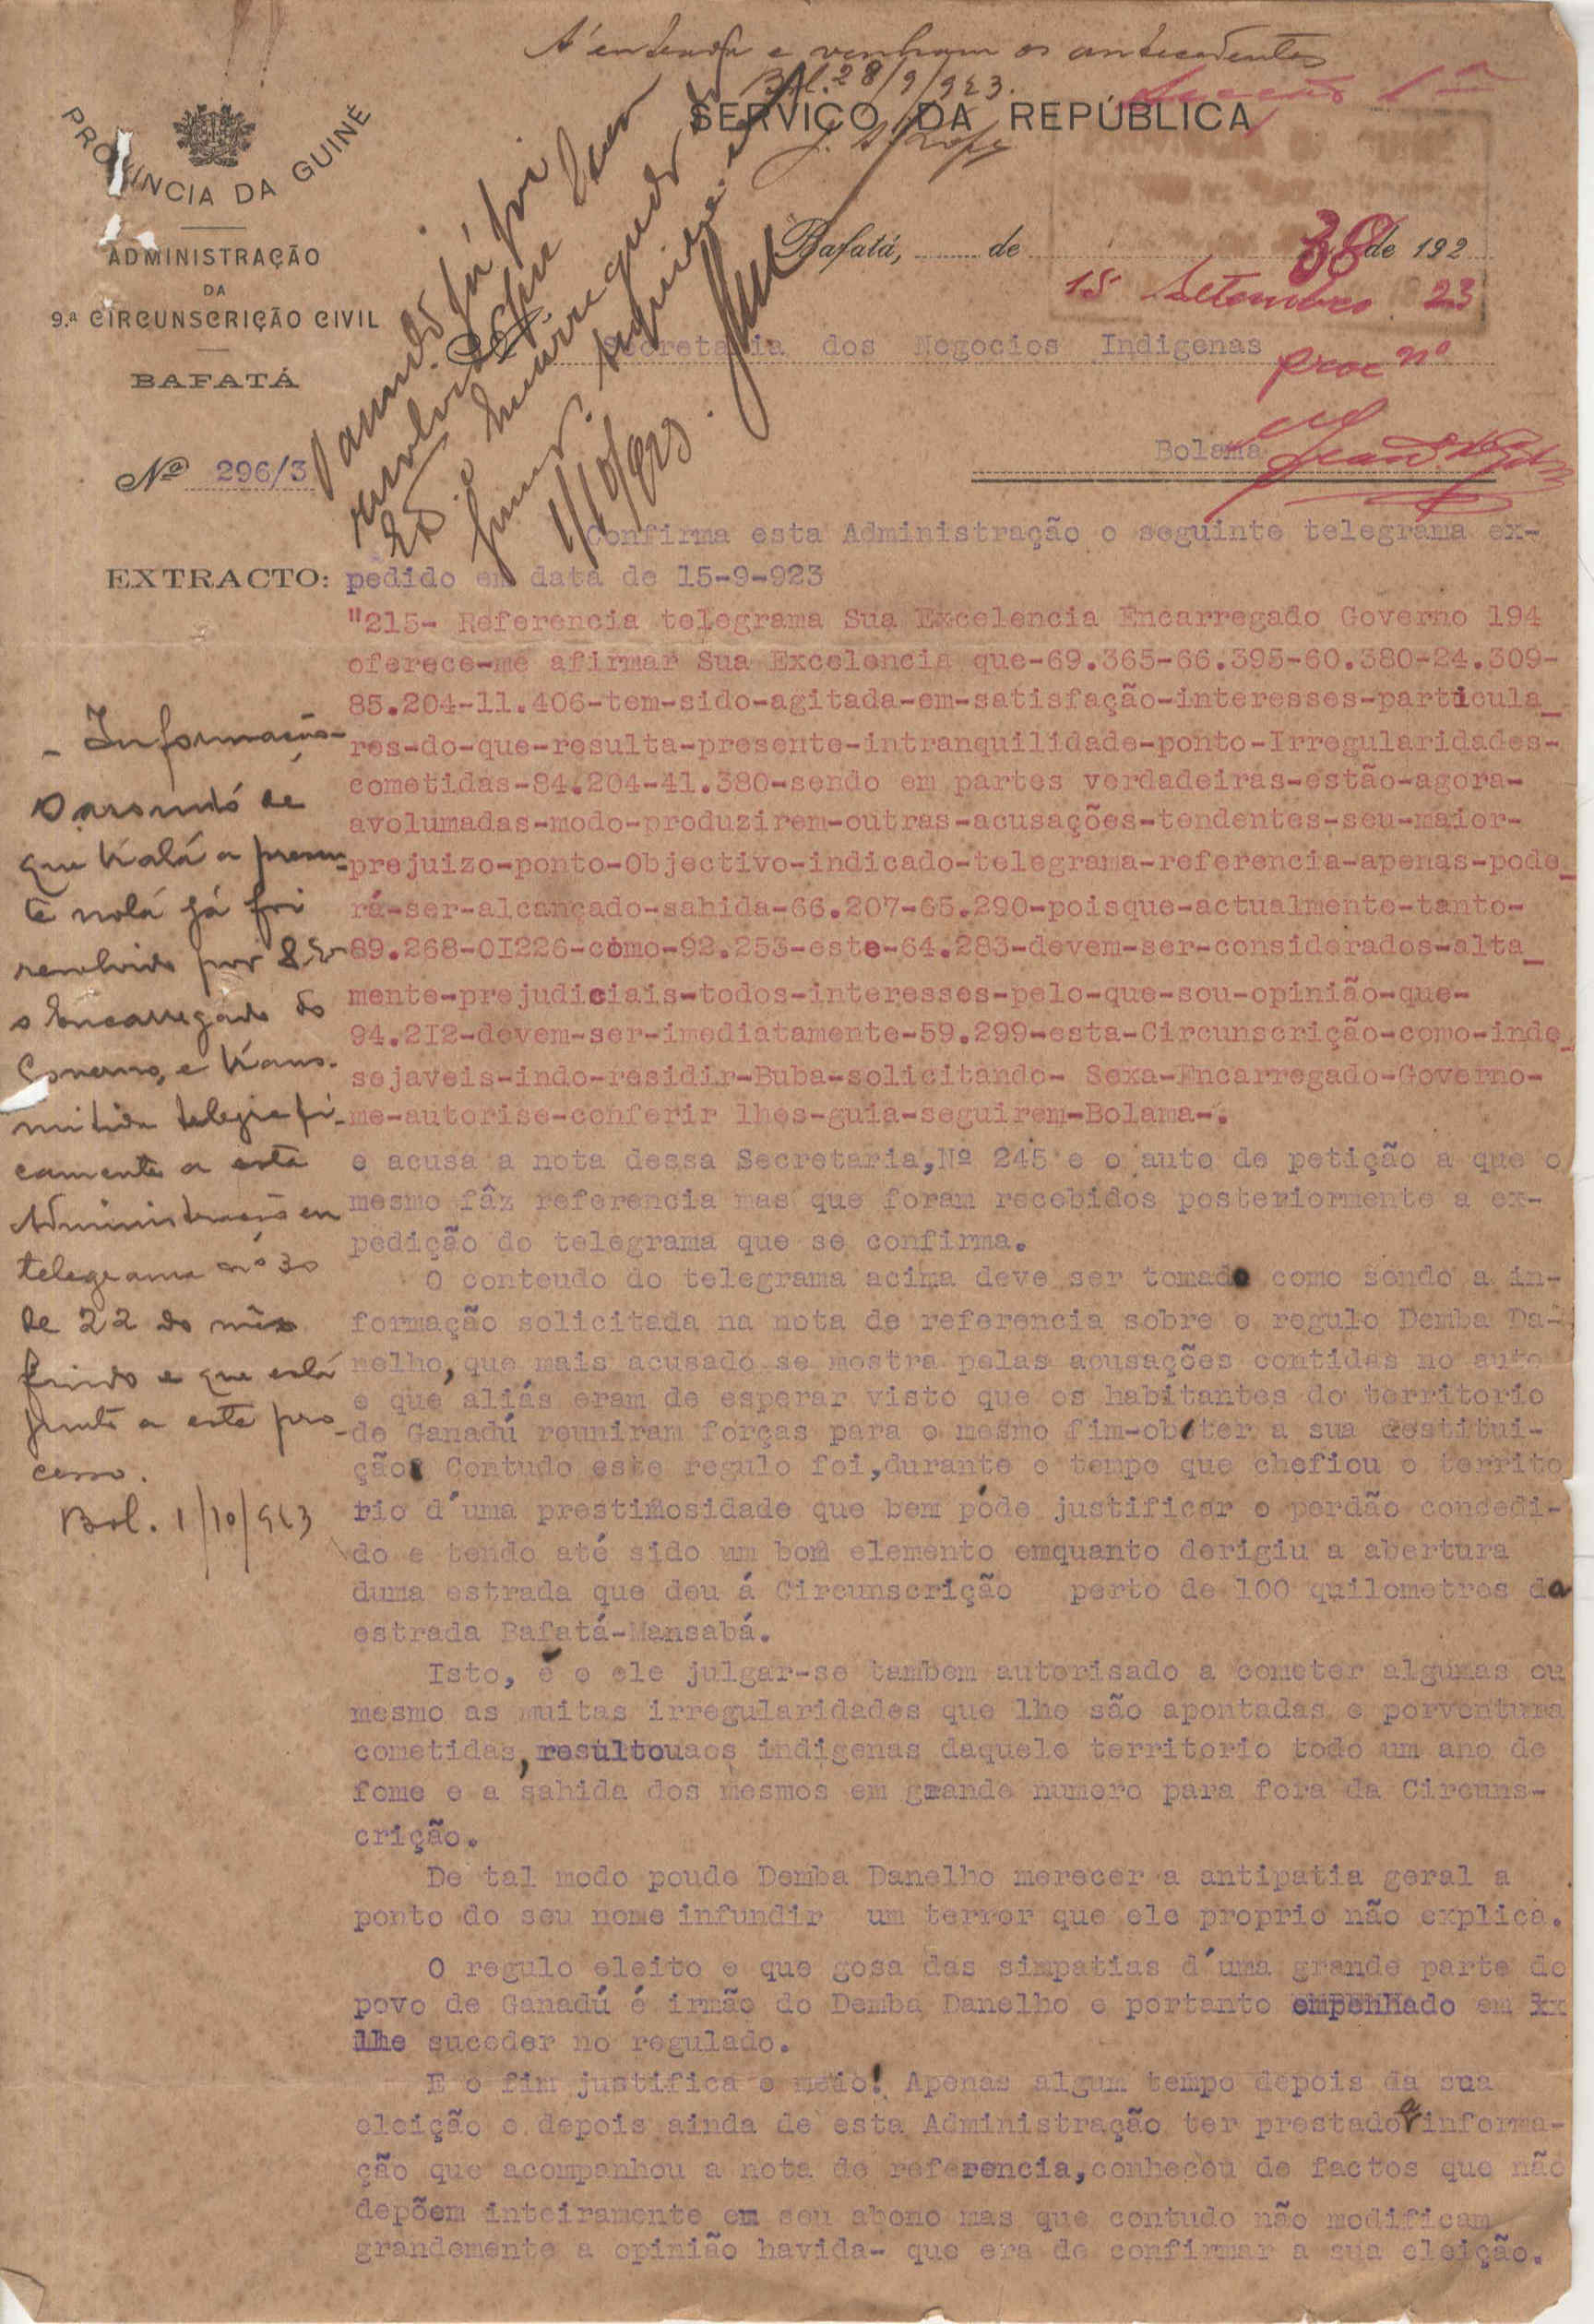 A' entrada e venham os antecedentes
Bol. 28/9/923.
SERVIÇO DA REPÚBLICA
Secção 1ª
PROVINCIA DA GUINÉ
ADMINISTRAÇÃO
DA
9.ª CIRCUNSCRIÇÃO CIVIL
BAFATÁ
Bafatá, de de 192
15 Setembro 23
38
Secretaria dos Negocios Indigenas
proc nº
Bolama
Nº 296/3
já foi
resolvido
1/10/923
Confirma esta Administração o seguinte telegrama ex-
EXTRACTO: pedido em data de 15-9-923
"215- Referencia telegrama Sua Excelencia Encarregado Governo 194
oferece-me afirmar Sua Excelencia que-69.365-66.395-60.380-24.309-
85.204-11.406-tem-sido-agitada-em-satisfação-interesses-particula_
res-do-que-resulta-presente-intranquilidade-ponto-Irregularidades-
cometidas-84.204-41.380-sendo em partes verdadeiras-estão-agora-
avolumadas-modo-produzirem-outras-acusações-tendentes-seu-maior-
prejuizo-ponto-Objectivo-indicado-telegrama-referencia-apenas-pode_
rá-ser-alcançado-sahida-66.207-65.290-poisque-actualmente-tanto-
89.268-OI226-como-92.253-este-64.283-devem-ser-considerados-alta_
mente-prejudiciais-todos-interesses-pelo-que-sou-opinião-que-
94.2I2-devem-ser-imediatamente-59.299-esta-Circunscrição-como-inde_
sejaveis-indo-residir-Buba-solicitando- Sexa-Encarregado-Governo-
me-autorise-conferir lhes-guia-seguirem-Bolama-.
e acusa a nota dessa Secretaria,Nº 245 e o auto de petição a que o
mesmo fâz referencia mas que foram recebidos posteriormente a ex-
pedição do telegrama que se confirma.
O conteudo do telegrama acima deve ser tomado como sendo a in-
formação solicitada na nota de referencia sobre o regulo Demba Da-
nelho, que mais acusado se mostra pelas acusações contidas no auto
e que aliás eram de esperar visto que os habitantes do territorio
de Ganadú reuniram forças para o mesmo fim-obter a sua restitui-
ção. Contudo este regulo foi,durante o tempo que chefiou o territo
rio d'uma prestimosidade que bem póde justificar o perdão concedi-
do e tendo até sido um bom elemento emquanto derigiu a abertura
duma estrada que deu á Circunscrição perto de 100 quilometros da
estrada Bafatá-Mansabá.
Isto, é o ele julgar-se tambem autorisado a cometer algumas ou
mesmo as muitas irregularidades que lhe são apontadas e porventura
cometidas, resultou aos indigenas daquele territorio todo um ano de
fome e a sahida dos mesmos em grande numero para fora da Circuns-
crição.
De tal modo poude Demba Danelho merecer a antipatia geral a
ponto do seu nome infundir um terror que ele proprio não explica.
O regulo eleito e que gosa das simpatias d'uma grande parte do
povo de Ganadú é irmão do Demba Danelho e portanto empenhado em xx
lhe suceder no regulado.
E o fim justifica o meio! Apenas algum tempo depois da sua
eleição e depois ainda de esta Administração ter prestado a informa-
ção que acompanhou a nota de referencia,conheceu de factos que não
depõem inteiramente em seu abono mas que contudo não modificam
grandemente a opinião havida- que era de confirmar a sua eleição.
- Informação -
O assunto de
que trata a presen-
te nota já foi
resolvido por S. Exª
o Encarregado do
Governo, e trans-
mitida telegrafi-
camente a esta
Administração em
telegrama nº 30
de 22 do mês
findo e que está
junto a este pro-
cesso.
Bol. 1/10/923